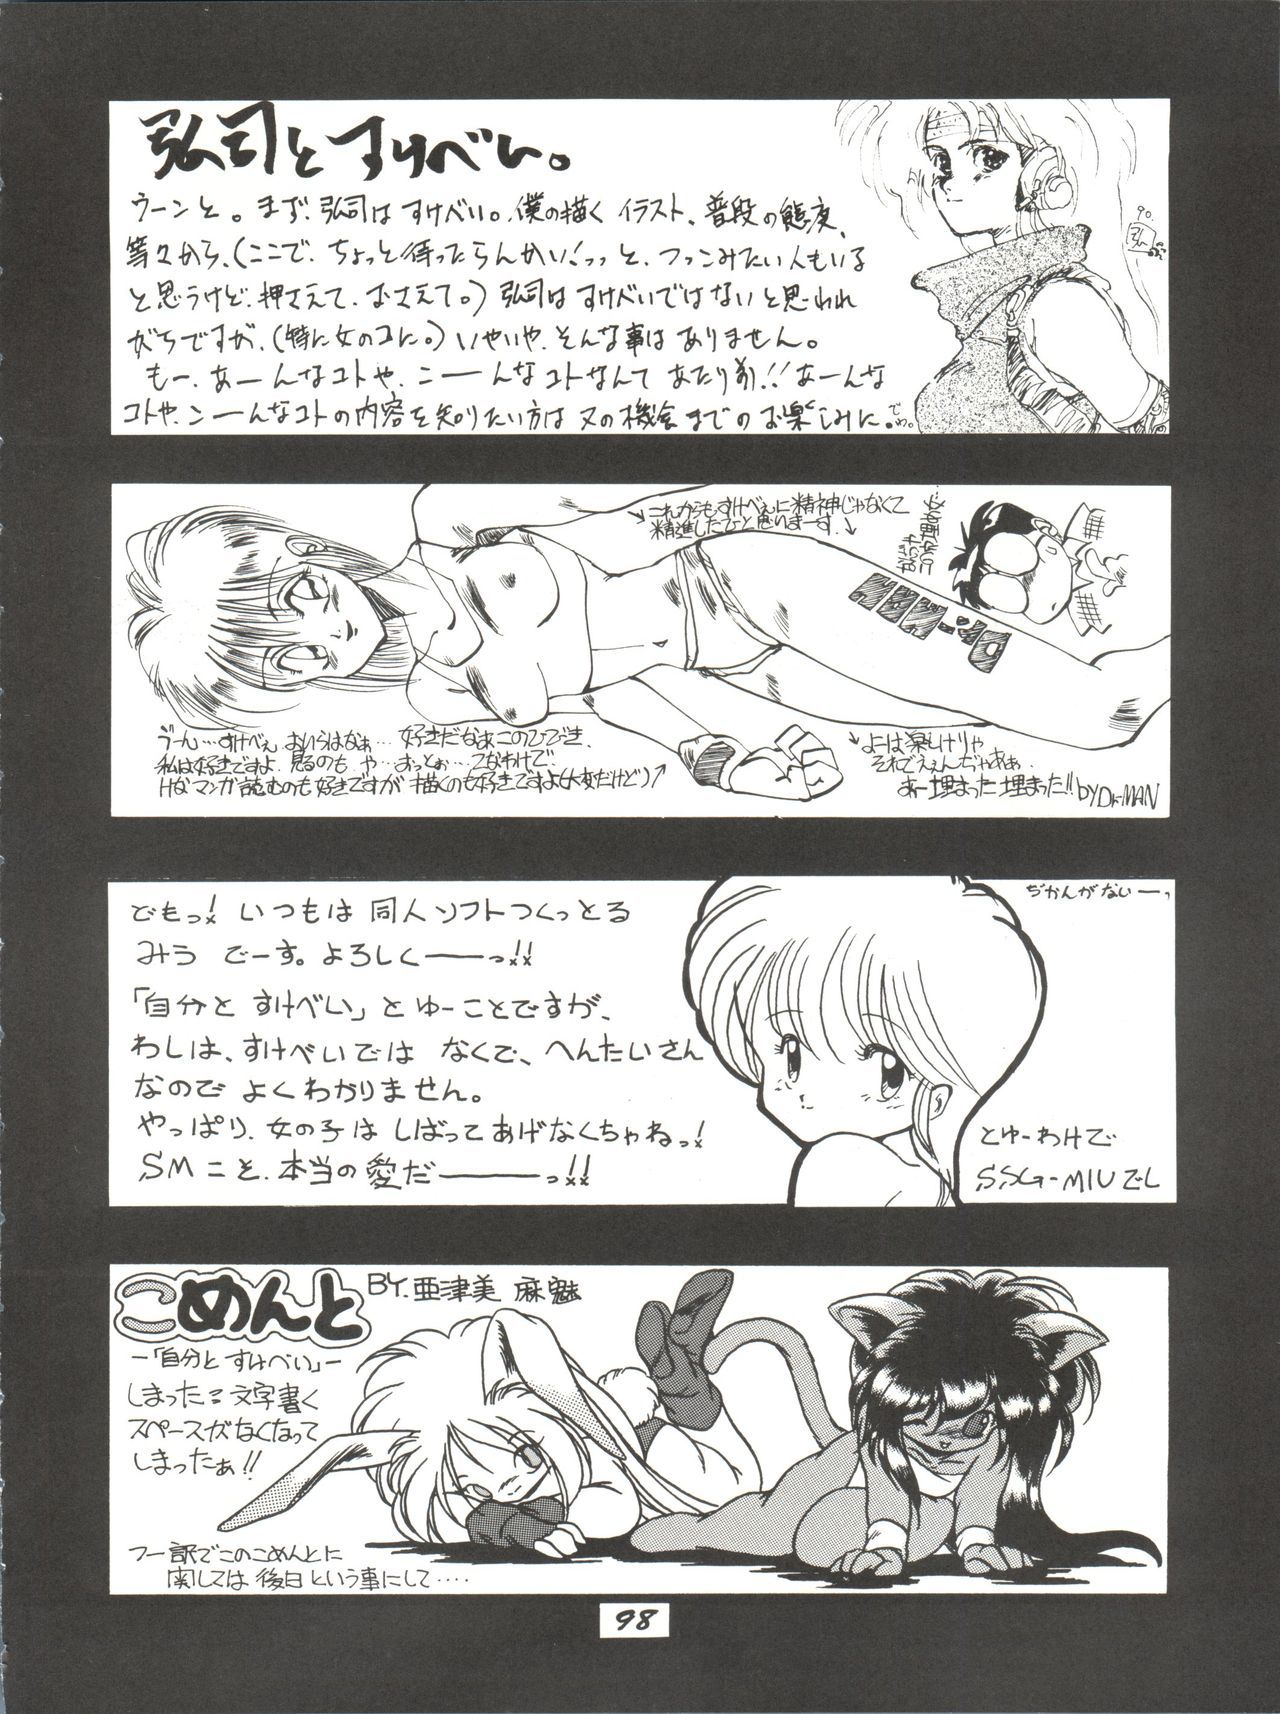 弘司とすけべい。
ウーンと。まず、弘司はすけべい。僕の描くイラスト、普段の態度、
等々から、(ここで、ちょっと待ったらんかい!っっと、つっこみたい人もいる
と思うけど、押さえて、おさえて。)弘司はすけべいではないと思われ
がちですが、(特に女のコに。)いやいや、そんな事はありません。
もー、あーんなコトや、こーーんなコトなんてあたり前!!あーんな
コトや、こーーんなコトの内容を知りたい方は又の機会までのお楽しみに。では。
90.
弘
これからもすけべぇに精神じゃなくて
精進したひと思いまーす.
うーん…すけべぇ おいらはなぁ… 好きだなぁこのひびき、
私は好きですよ、見るのも や…おっとぉ…てなわけで
けなマンガ読むのも好きですが描くのも好きですよ(大変だけど)
よーは楽しけりゃ
それでええんぢゃああ..
あー埋まった埋まった!! by Dr-MAN
でもっ! いつもは 同人ソフトつくっとる
みう でーす。よろしくーーっ!!
「自分と すけべい」と ゆーことですが、
わしは、すけべいでは なくて、へんたいさん
なので よくわかりません。
やっぱり、女の子は しばってあげなくちゃねっ!
SMこそ、本当の愛だーーっ!!
ぢかんがないーっ
とゆーわけで
S,SG-MIUでし
こめんと
BY.亜津美 麻魅
ー「自分と すけべい」ー
しまった= 文字書く
スペースがなくなって
しまったぁ!!
フー訳でこのこめんとに
関しては 後日という事にして....
98